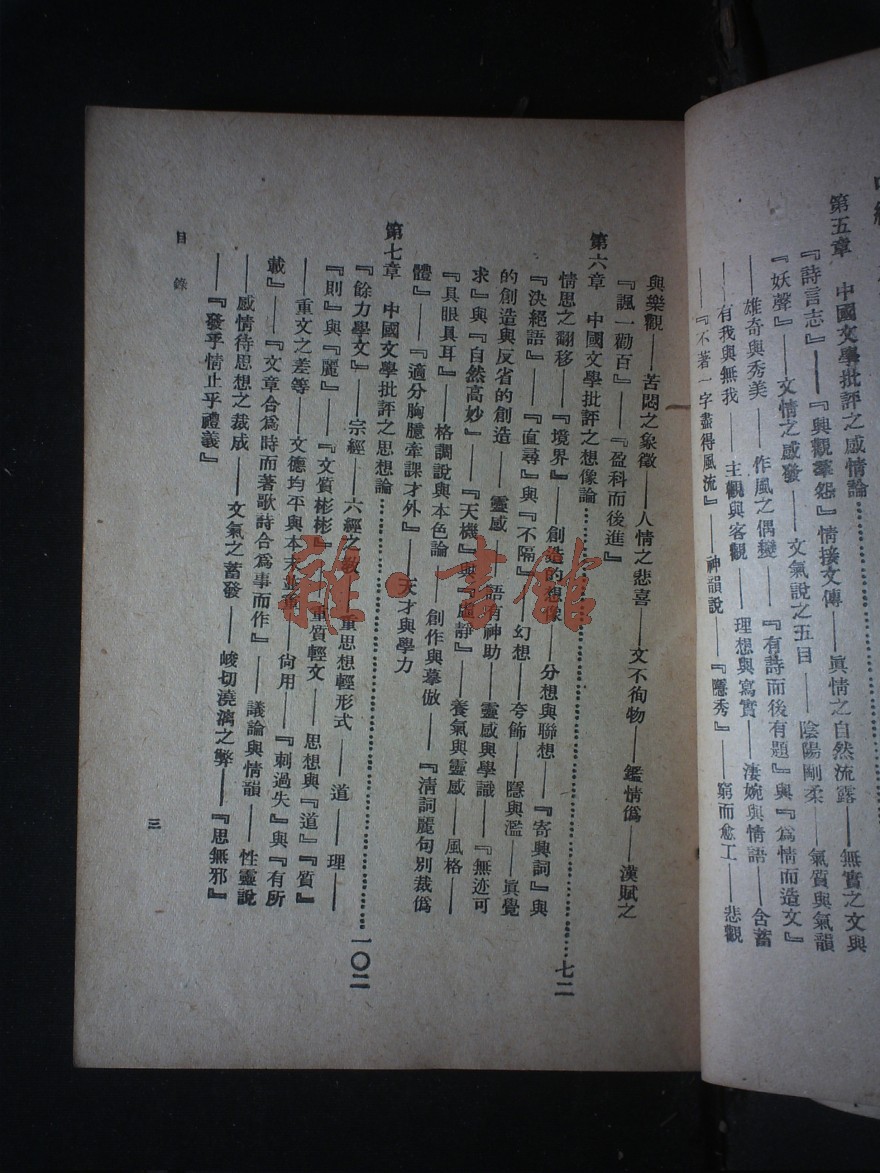 第五章　中國文學批評之感情論
『詩言志』——『興觀羣怨』情接文傳——眞情之自然流露——無實之文與
『妖聲』——文情之感發——文氣說之五目——陰陽剛柔——氣質與氣韻
——雄奇與秀美——作風之偶變——『有詩而後有題』與『爲情而造文』
——有我與無我——主觀與客觀——理想與寫實——淒婉與情語——含蓄
——『不著一字盡得風流』——神韻說——『隱秀』——窮而愈工——悲觀
與樂觀——苦悶之象徵——人情之悲喜——文不徇物——鑑情僞——漢賦之
『諷一勸百』——『盈科而後進』
第六章　中國文學批評之想像論……七二
情思之翻移——『境界』——創造的想像——分想與聯想——『寄興詞』與
『決絕語』——『直尋』與『不隔』——幻想——夸飾——隱與濫——眞覺
的創造與反省的創造——靈感——語有神助——靈感與學識——『無迹可
求』與『自然高妙』——『天機』與『虛靜』——養氣與靈感——風格——
『具眼具耳』——格調說與本色論——創作與摹倣——『淸詞麗句別裁僞
體』——『適分胸臆牽課才外』——天才與學力
第七章　中國文學批評之思想論……一〇二
『餘力學文』——宗經——六經之教——重思想輕形式——道——理——
『則』與『麗』——『文質彬彬』——重質輕文——思想與『道』『質』
——重文之差等——文德均平與本末並重——尙用——『刺過失』與『有所
載』——『文章合爲時而著歌詩合爲事而作』——議論與情韻——性靈說
——感情待思想之裁成——文氣之蓄發——峻切澆漓之弊——『思無邪』
——『發乎情止乎禮義』
目錄
三
雜·書館